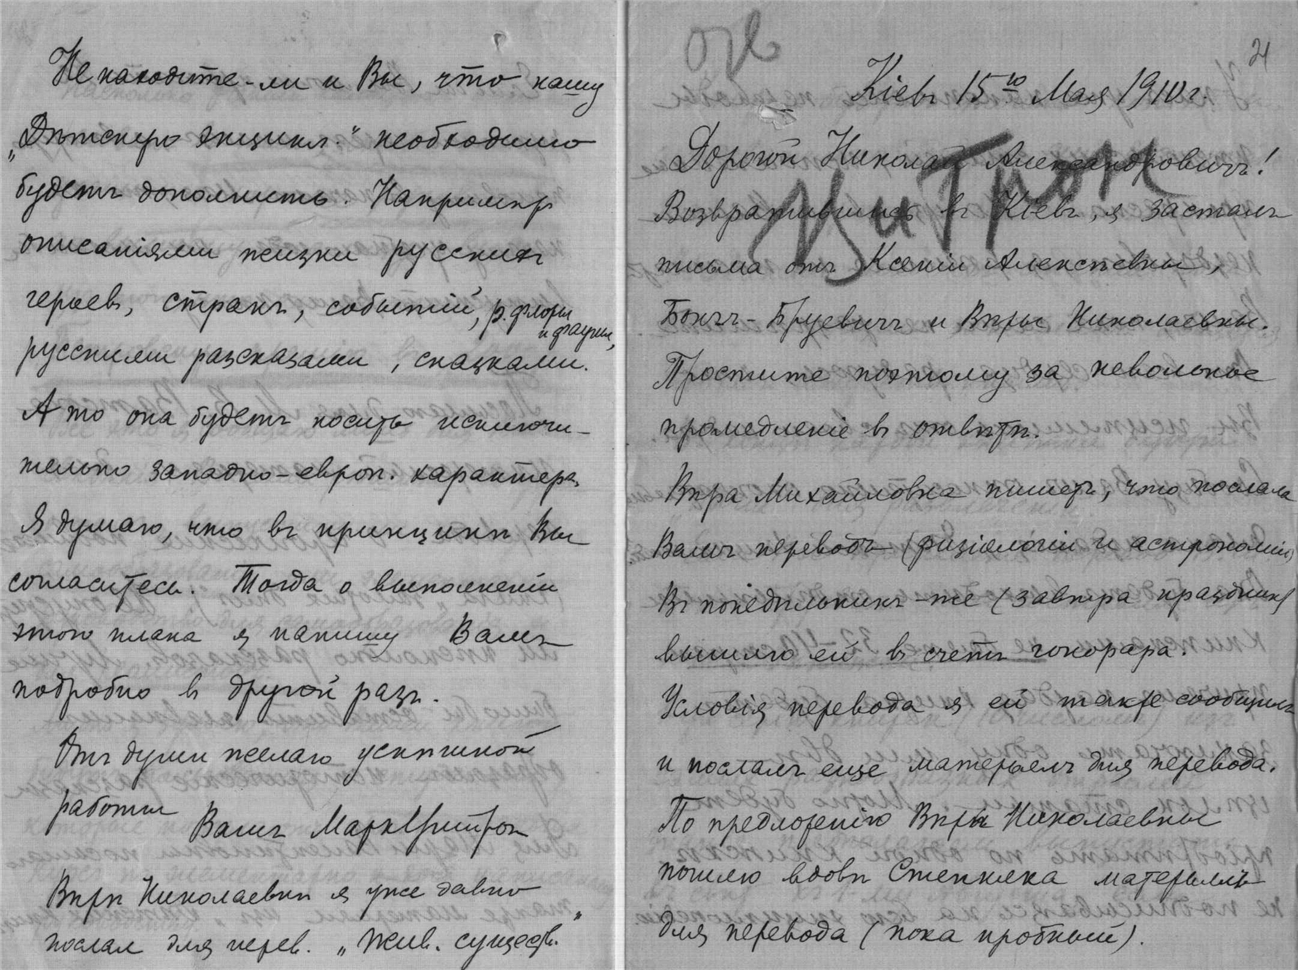 Не находите-ли и Вы, что нашу
„Дѣтскую энцикл." необходимо
будетъ дополнить. Напримѣръ
описаніями жизни русскихъ
героевъ, странъ, событій, р. флоры
и фауны,
русскими разсказами, сказками.
А то она будетъ носить исключи-
тельно западно-европ. характеръ.
Я думаю, что въ принципѣ Вы
согласитесь. Тогда о выполненіи
этого плана я напишу Вамъ
подробно въ другой разъ.
Отъ души желаю успѣшной
работы
Вашъ Маркъ Цитронъ
Вѣрѣ Николаевнѣ я уже давно
послал для перев. „Жив. существ."
21
Кіевъ 15го Мая 1910 г.
Дорогой Николай Александровичъ!
Цитрон
Возвратившись въ Кіевъ, я засталъ
письма отъ Ксеніи Алексѣевны,
Бончъ-Бруевичъ и Вѣры Николаевны.
Простите поэтому за невольное
промедленіе въ отвѣтѣ.
Вѣра Михайловна пишетъ, что послала
Вамъ переводъ (физіологіи и астрономіи)
Въ понедѣльникъ-же (завтра праздникъ)
вышлю ей въ счетъ гонорара.
Условія перевода я ей также сообщилъ
и послалъ еще матерьялъ для перевода.
По предложенію Вѣры Николаевны
пошлю вдовѣ Степняка матерьялъ
для перевода (пока пробный).